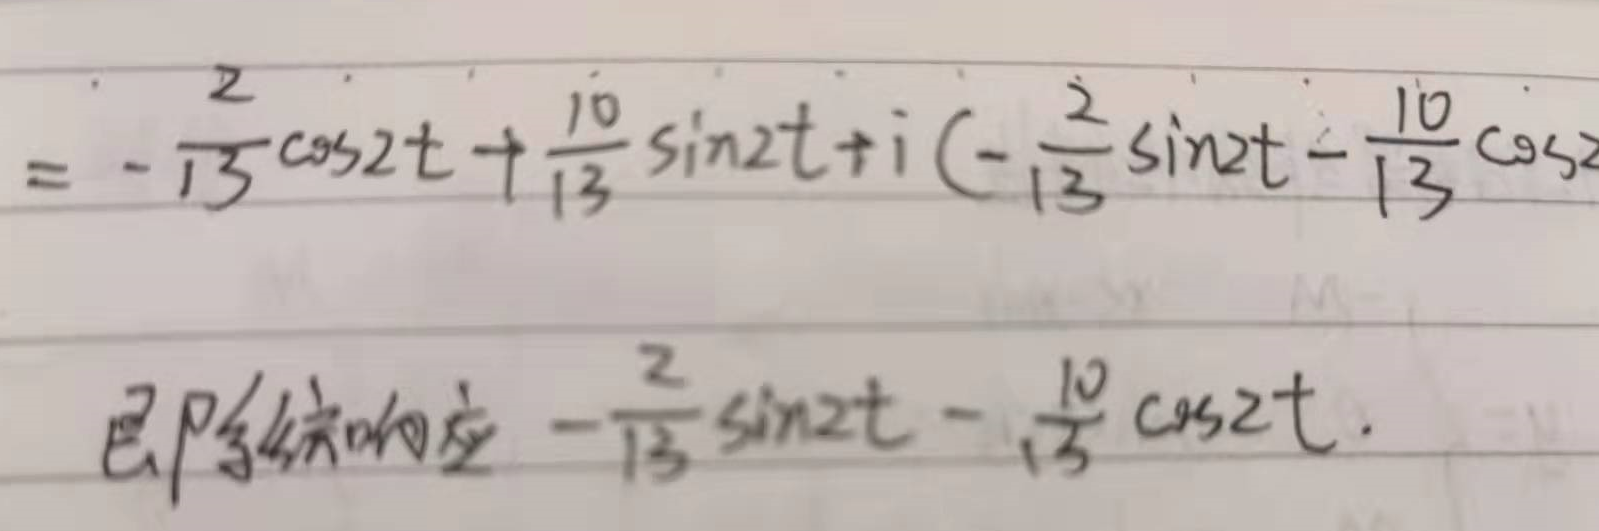 = -2/13 cos2t + 10/13 sin2t + i (-2/13 sin2t - 10/13 cos2
即系统响应 -2/13 sin2t - 10/13 cos2t.